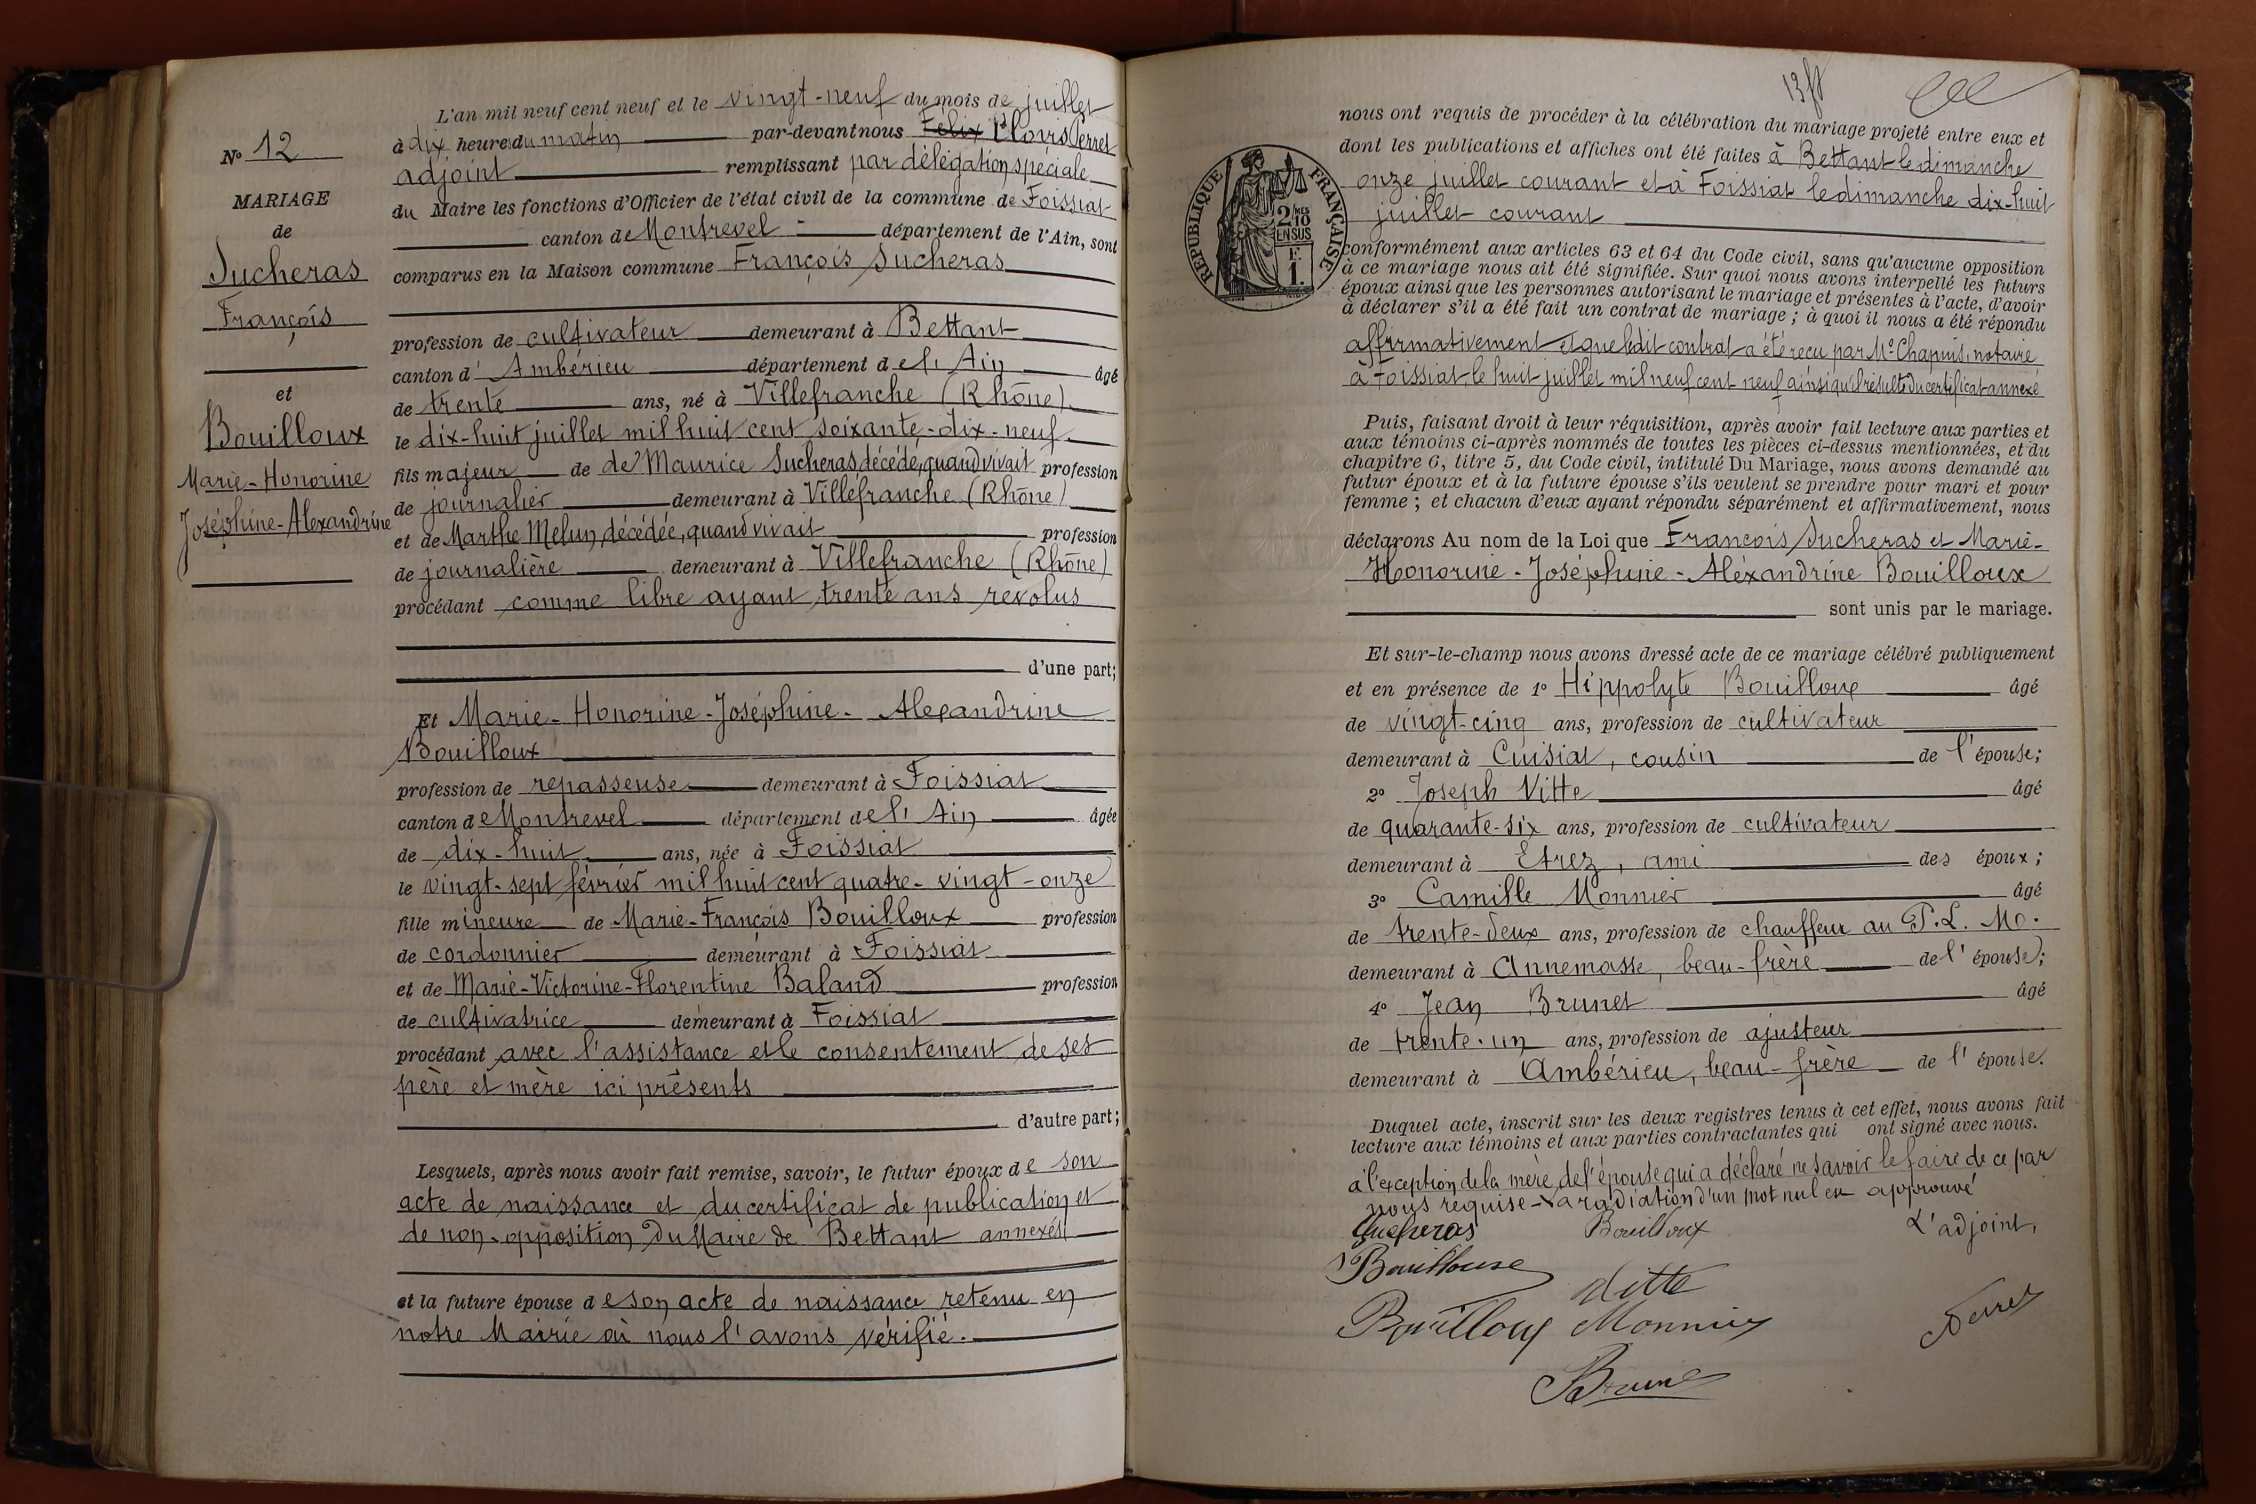 L'an mil neuf cent neuf et le vingt-neuf du mois de juillet
à dix heure du matin par-devant nous Félix Clovis Perret
adjoint remplissant par délégation spéciale
du Maire les fonctions d'Officier de l'état civil de la commune de Foissiat
canton de Montrevel département de l'Ain, sont
comparus en la Maison commune François Sucheras
profession de cultivateur demeurant à Bettant
canton d'Ambérieu département de l'Ain âgé
de trente ans, né à Villefranche (Rhône)
le dix-huit juillet mil huit cent soixante-dix-neuf
fils majeur de de Maurice Sucheras, décédé, quand vivait profession
de journalier demeurant à Villefranche (Rhône)
et de Marthe Melun, décédée, quand vivait profession
de journalière demeurant à Villefranche (Rhône)
procédant comme libre ayant trente ans revolus
d'une part;
Et Marie-Honorine-Joséphine-Alexandrine
Bouilloux
profession de repasseuse demeurant à Foissiat
canton de Montrevel département de l'Ain âgée
de dix-huit ans, née à Foissiat
le vingt-sept février mil huit cent quatre-vingt-onze
fille mineure de Marie-François Bouilloux profession
de cordonnier demeurant à Foissiat
et de Marie-Victorine-Florentine Baland profession
de cultivatrice demeurant à Foissiat
procédant avec l'assistance et le consentement de ses
père et mère ici présents
d'autre part;
Lesquels, après nous avoir fait remise, savoir, le futur époux de son
acte de naissance et du certificat de publication et
de non-opposition du Maire de Bettant annexés
et la future épouse de son acte de naissance retenu en
notre Mairie où nous l'avons vérifié.
No 12
MARIAGE
de
Sucheras
François
et
Bouilloux
Marie-Honorine
Joséphine-Alexandrine
RÉPUBLIQUE FRANÇAISE
2/10MES
EN SUS
F.
1.
nous ont requis de procéder à la célébration du mariage projeté entre eux et
dont les publications et affiches ont été faites à Bettant le dimanche
onze juillet courant et à Foissiat le dimanche dix-huit
juillet courant
conformément aux articles 63 et 64 du Code civil, sans qu'aucune opposition
à ce mariage nous ait été signifiée. Sur quoi nous avons interpellé les futurs
époux ainsi que les personnes autorisant le mariage et présentes à l'acte, d'avoir
à déclarer s'il a été fait un contrat de mariage; à quoi il nous a été répondu
affirmativement et que ledit contrat a été reçu par Me Chapuis, notaire
à Foissiat, le huit juillet mil neuf cent neuf ainsi qu'il résulte du certificat annexé
Puis, faisant droit à leur réquisition, après avoir fait lecture aux parties et
aux témoins ci-après nommés de toutes les pièces ci-dessus mentionnées, et du
chapitre 6, titre 5, du Code civil, intitulé Du Mariage, nous avons demandé au
futur époux et à la future épouse s'ils veulent se prendre pour mari et pour
femme; et chacun d'eux ayant répondu séparément et affirmativement, nous
déclarons Au nom de la Loi que François Sucheras et Marie-
Honorine-Joséphine-Aléxandrine Bouilloux
sont unis par le mariage.
Et sur-le-champ nous avons dressé acte de ce mariage célébré publiquement
et en présence de 1o Hippolyte Bouilloux âgé
de vingt-cinq ans, profession de cultivateur
demeurant à Cuisiat, cousin de l'épouse;
2o Joseph Vitte âgé
de quarante-six ans, profession de cultivateur
demeurant à Etrez, ami des époux;
3o Camille Monnier âgé
de trente-deux ans, profession de chauffeur au P.L.M.
demeurant à Annemasse, beau-frère de l'épouse;
4o Jean Brunet âgé
de trente-un ans, profession de ajusteur
demeurant à Ambérieu, beau-frère de l'épouse.
Duquel acte, inscrit sur les deux registres tenus à cet effet, nous avons fait
lecture aux témoins et aux parties contractantes qui ont signé avec nous.
à l'exception de la mère de l'épouse qui a déclaré ne savoir le faire de ce par
nous requise - La radiation d'un mot nul est approuvé
Sucheras Bouilloux L'adjoint,
Bouilloux Vitte
Bouilloux Monnier Perret
Brunet